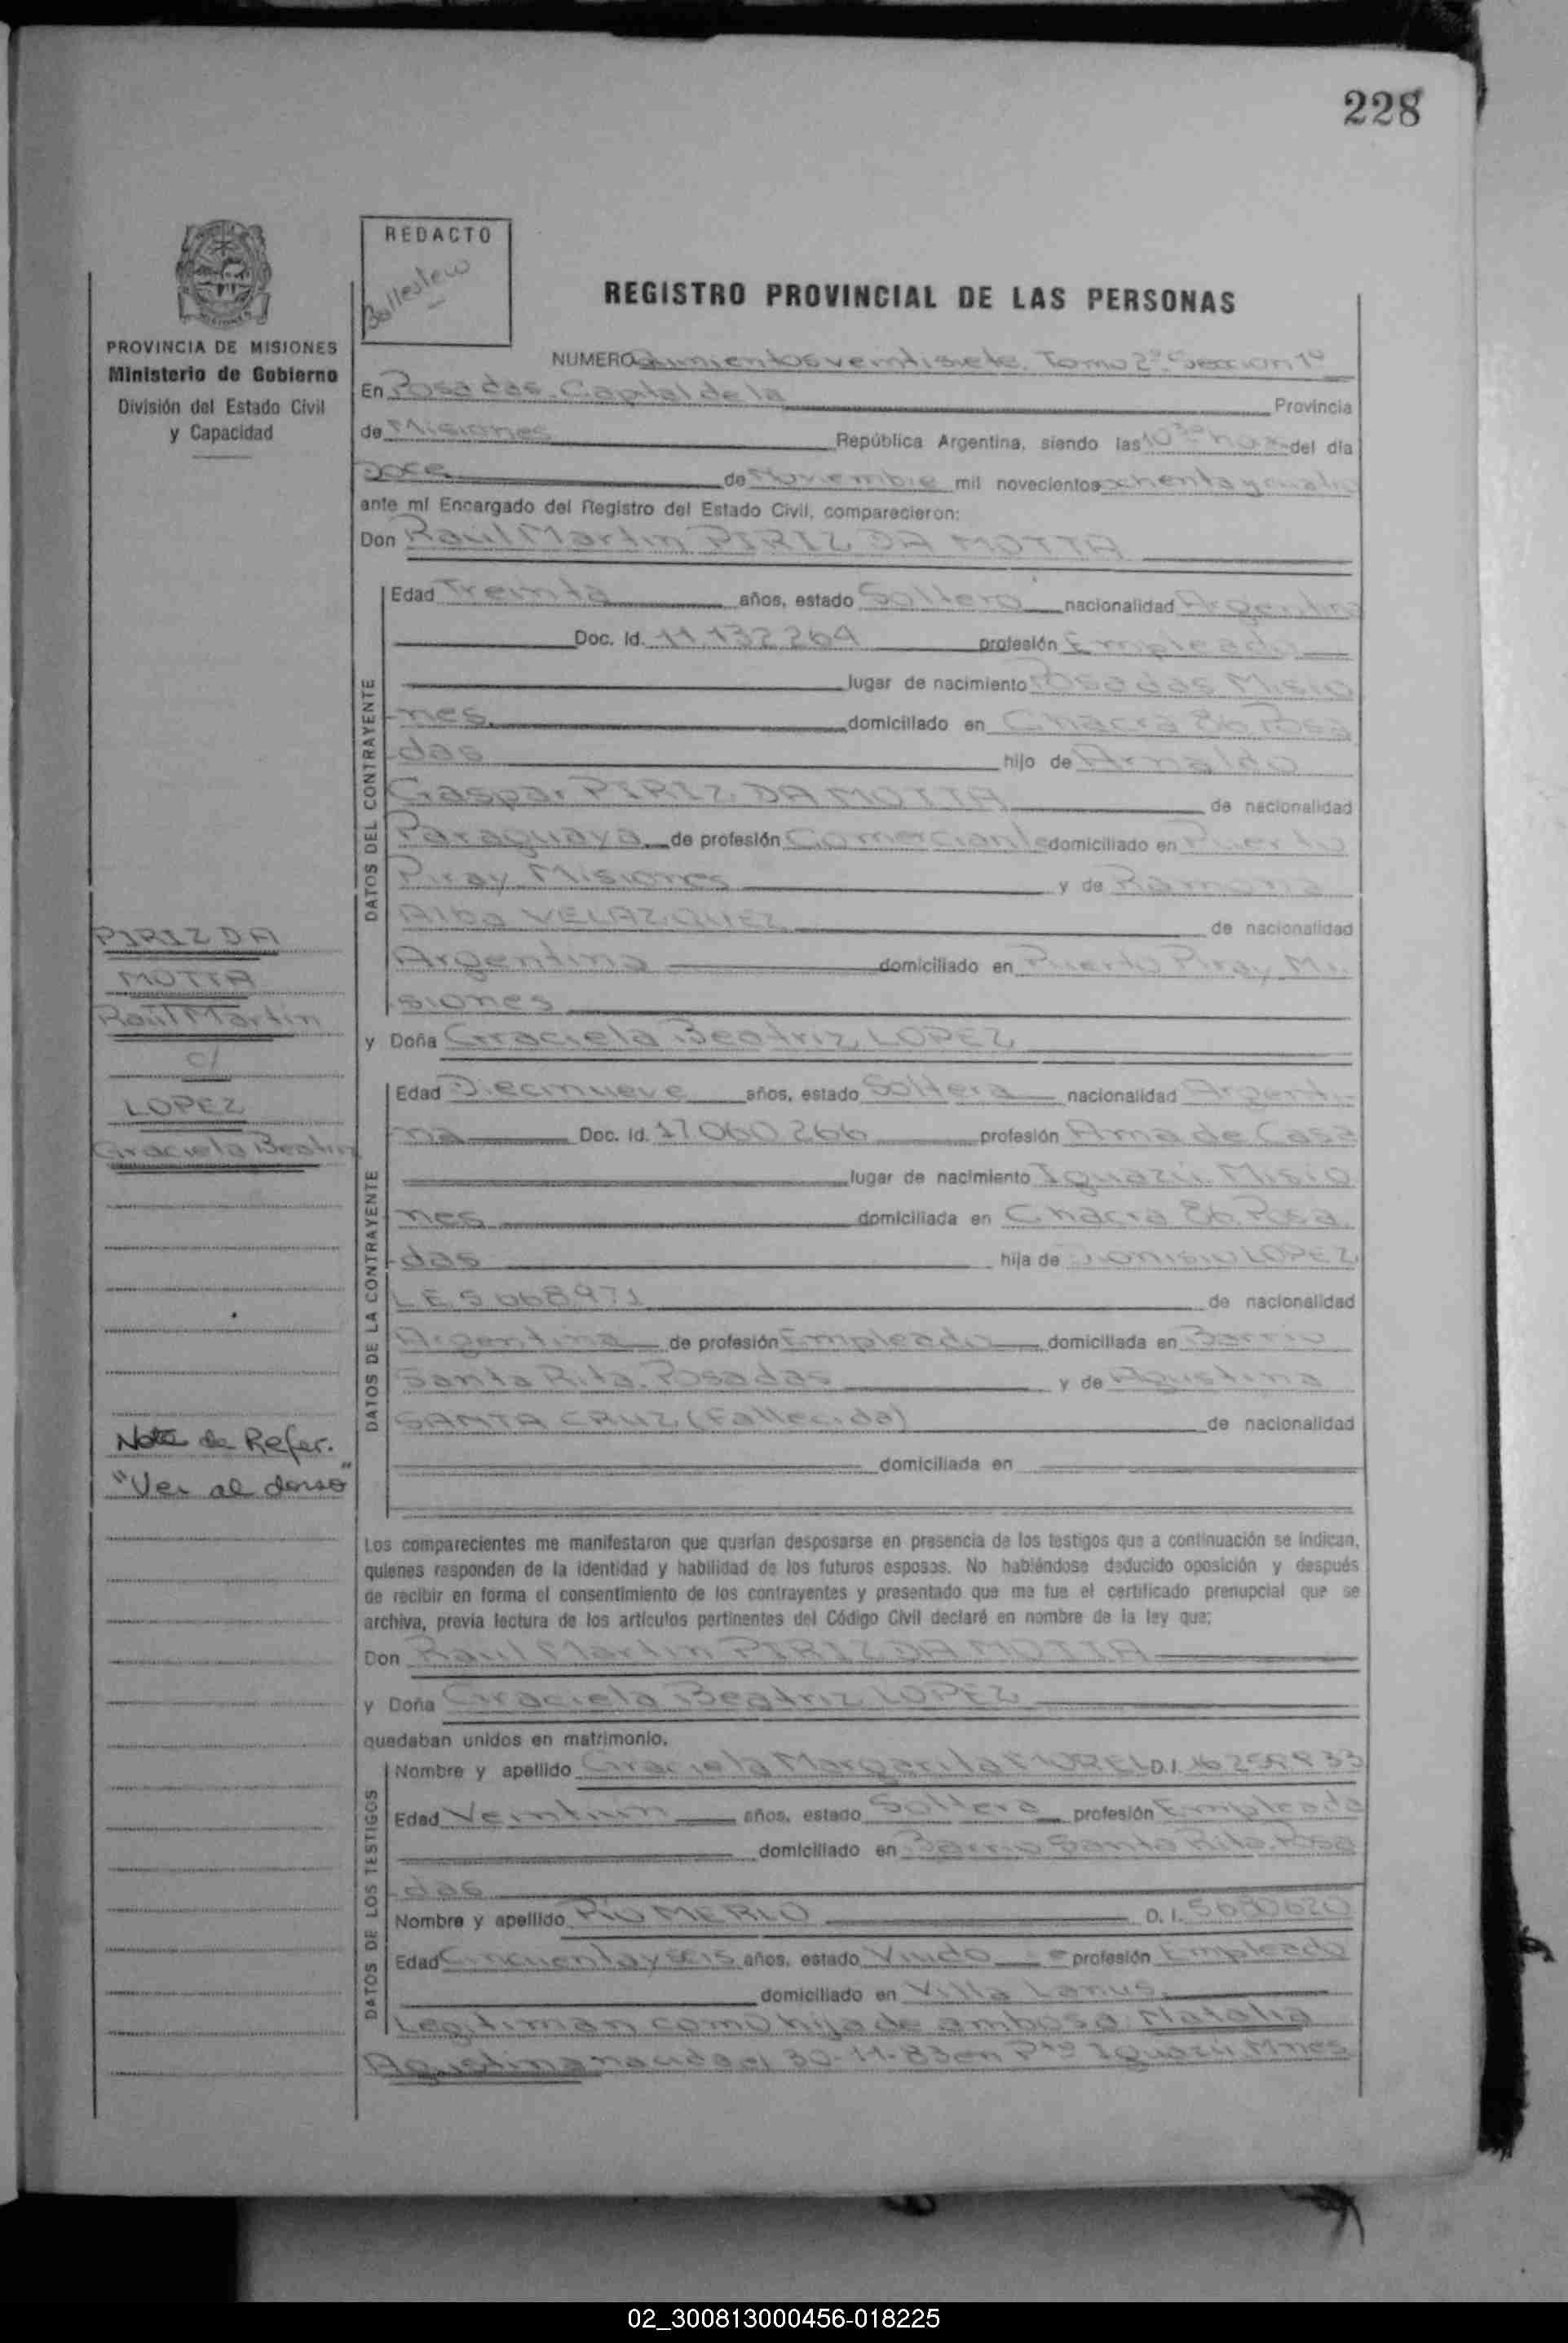 228
REDACTO
REGISTRO PROVINCIAL DE LAS PERSONAS
PROVINCIA DE MISIONES
Ministerio de Gobierno
División del Estado Civil
y Capacidad
NUMERO Quinientos ventisiete. Tomo 2º. Seccion 1º
En Posadas. Capital de la Provincia
de Misiones República Argentina, siendo las 10 30 horas del día
Doce de Noviembre mil novecientos ochenta y cuatro
ante mí Encargado del Registro del Estado Civil, comparecieron:
Don Raúl Martin PIRIZ DA MOTTA
DATOS DEL CONTRAYENTE
Edad Treinta años, estado Soltero nacionalidad Argentina
Doc. Id. 11.132.264 profesión Empleado
lugar de nacimiento Posadas Misio
nes. domiciliado en Chacra 86. Posa
das hijo de Arnaldo
Gaspar PIRIZ DA MOTTA de nacionalidad
Paraguaya de profesión Comerciante domiciliado en Puerto
Piray. Misiones y de Ramona
Alba VELAZQUEZ de nacionalidad
Argentina domiciliado en Puerto Piray. Mi
siones
y Doña Graciela Beatriz LOPEZ
PIRIZ DA
MOTTA
Raúl Martin
c/
LOPEZ
Graciela Beatriz
DATOS DE LA CONTRAYENTE
Edad Diecinueve años, estado Soltera nacionalidad Argenti
na Doc. Id. 17.060.266 profesión Ama de Casa
lugar de nacimiento Iguazú. Misio
nes domiciliada en Chacra 86. Posa
das hija de Dionisio LOPEZ
L E 5 668971 de nacionalidad
Argentina de profesión Empleado domiciliada en Barrio
Santa Rita. Posadas y de Agustina
SANTA CRUZ (Fallecida) de nacionalidad
domiciliada en
Nota de Refer.
"Ver al dorso"
Los comparecientes me manifestaron que querían desposarse en presencia de los testigos que a continuación se indican,
quienes responden de la identidad y habilidad de los futuros esposos. No habiéndose deducido oposición y después
de recibir en forma el consentimiento de los contrayentes y presentado que me fue el certificado prenupcial que se
archiva, previa lectura de los artículos pertinentes del Código Civil declaré en nombre de la ley que:
Don Raul Martin PIRIZ DA MOTTA
y Doña Graciela Beatriz LOPEZ
quedaban unidos en matrimonio.
DATOS DE LOS TESTIGOS
Nombre y apellido Graciela Margarita D.I.
Edad Veintiun años, estado Soltera profesión Empleada
domiciliado en Barrio Santa Rita. Posa
das
Nombre y apellido Pío MERLO D. I. 5680620
Edad Cincuenta y seis años, estado Viudo profesión Empleado
domiciliado en Villa Lanus
Legitiman como hija de ambos a: Natalia
Agustina nacida el 30-11-83 en Pto Iguazú. Mnes
02_300813000456-018225